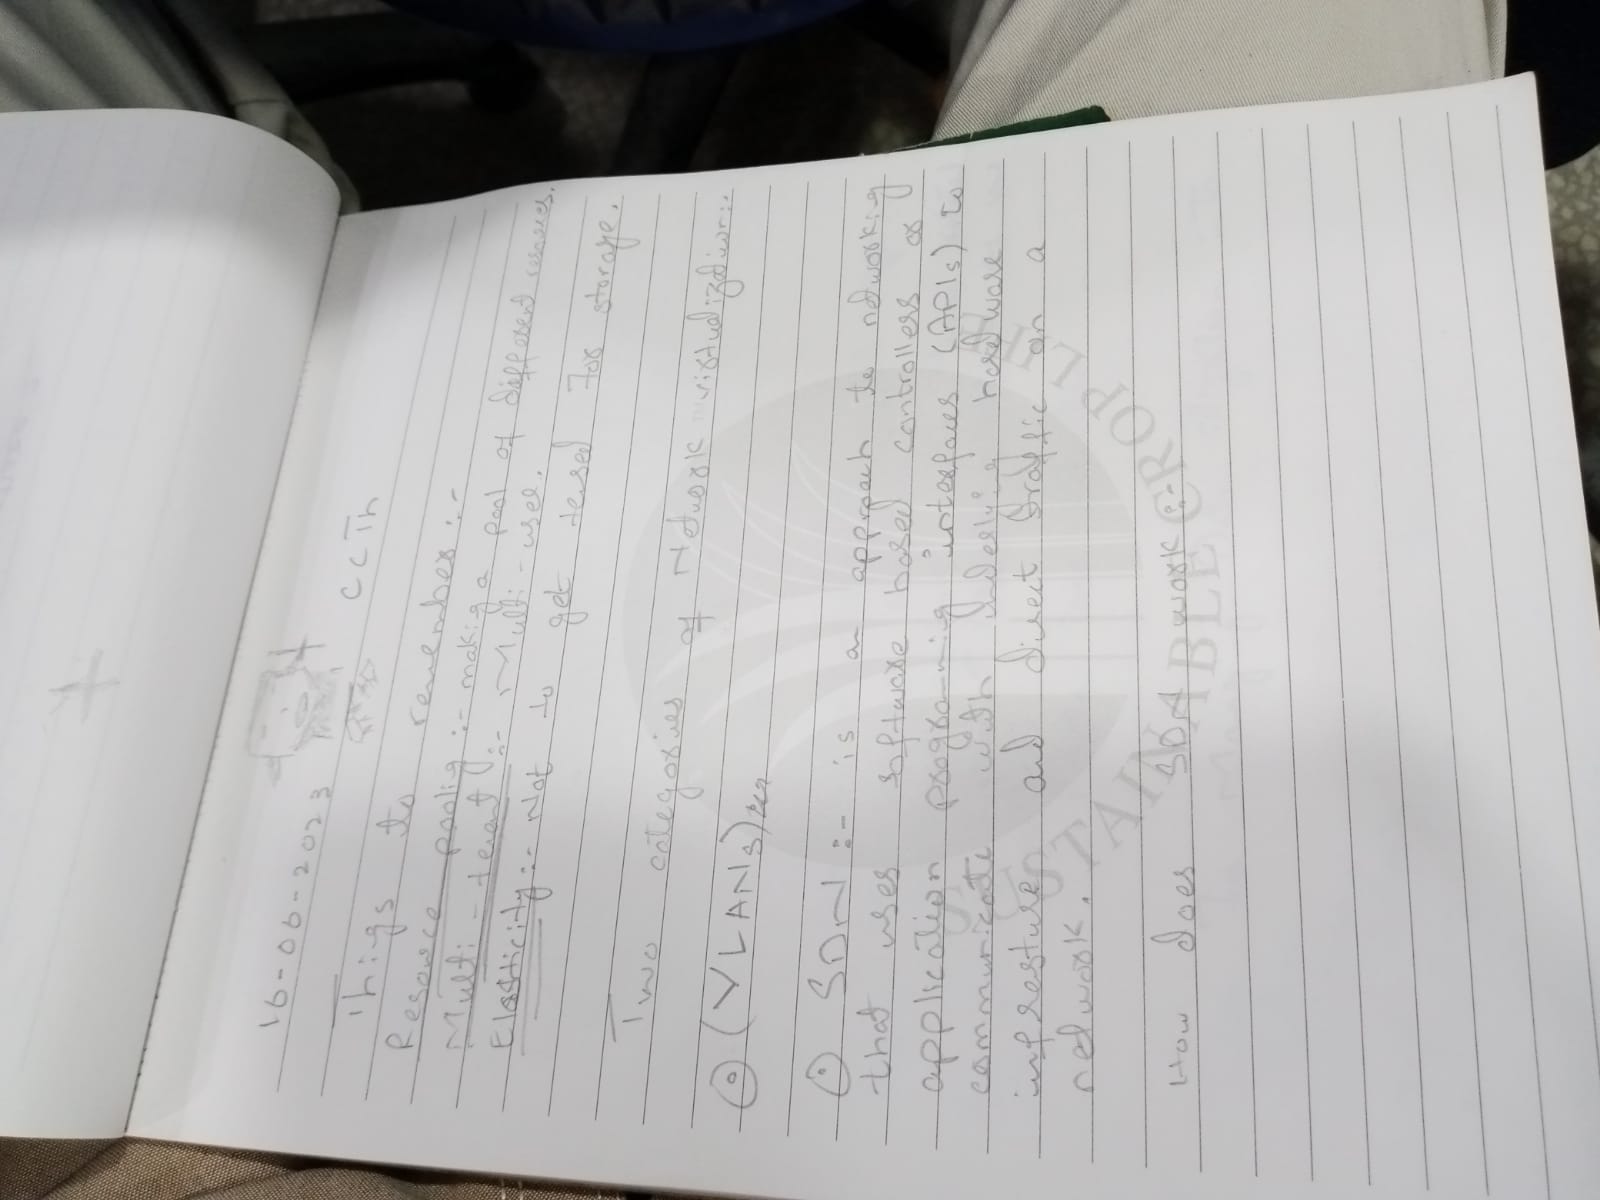 16-06-2023
CCTh
Things to remember :-
Resource pooling :- making a pool of different resources.
Multi-tenant :- Multi-user.
Elasticity :- Not to get tensed for storage.
Two categories of Network virtualization :-
(VLANs)
SDN :- is an approach to networking
that uses software based controllers or
application programming interfaces (APIs) to
communicate with underlying hardware
infrastructure and direct traffic on a
network.
How does SDN work :-
SUSTAINABLE CROPLIFE